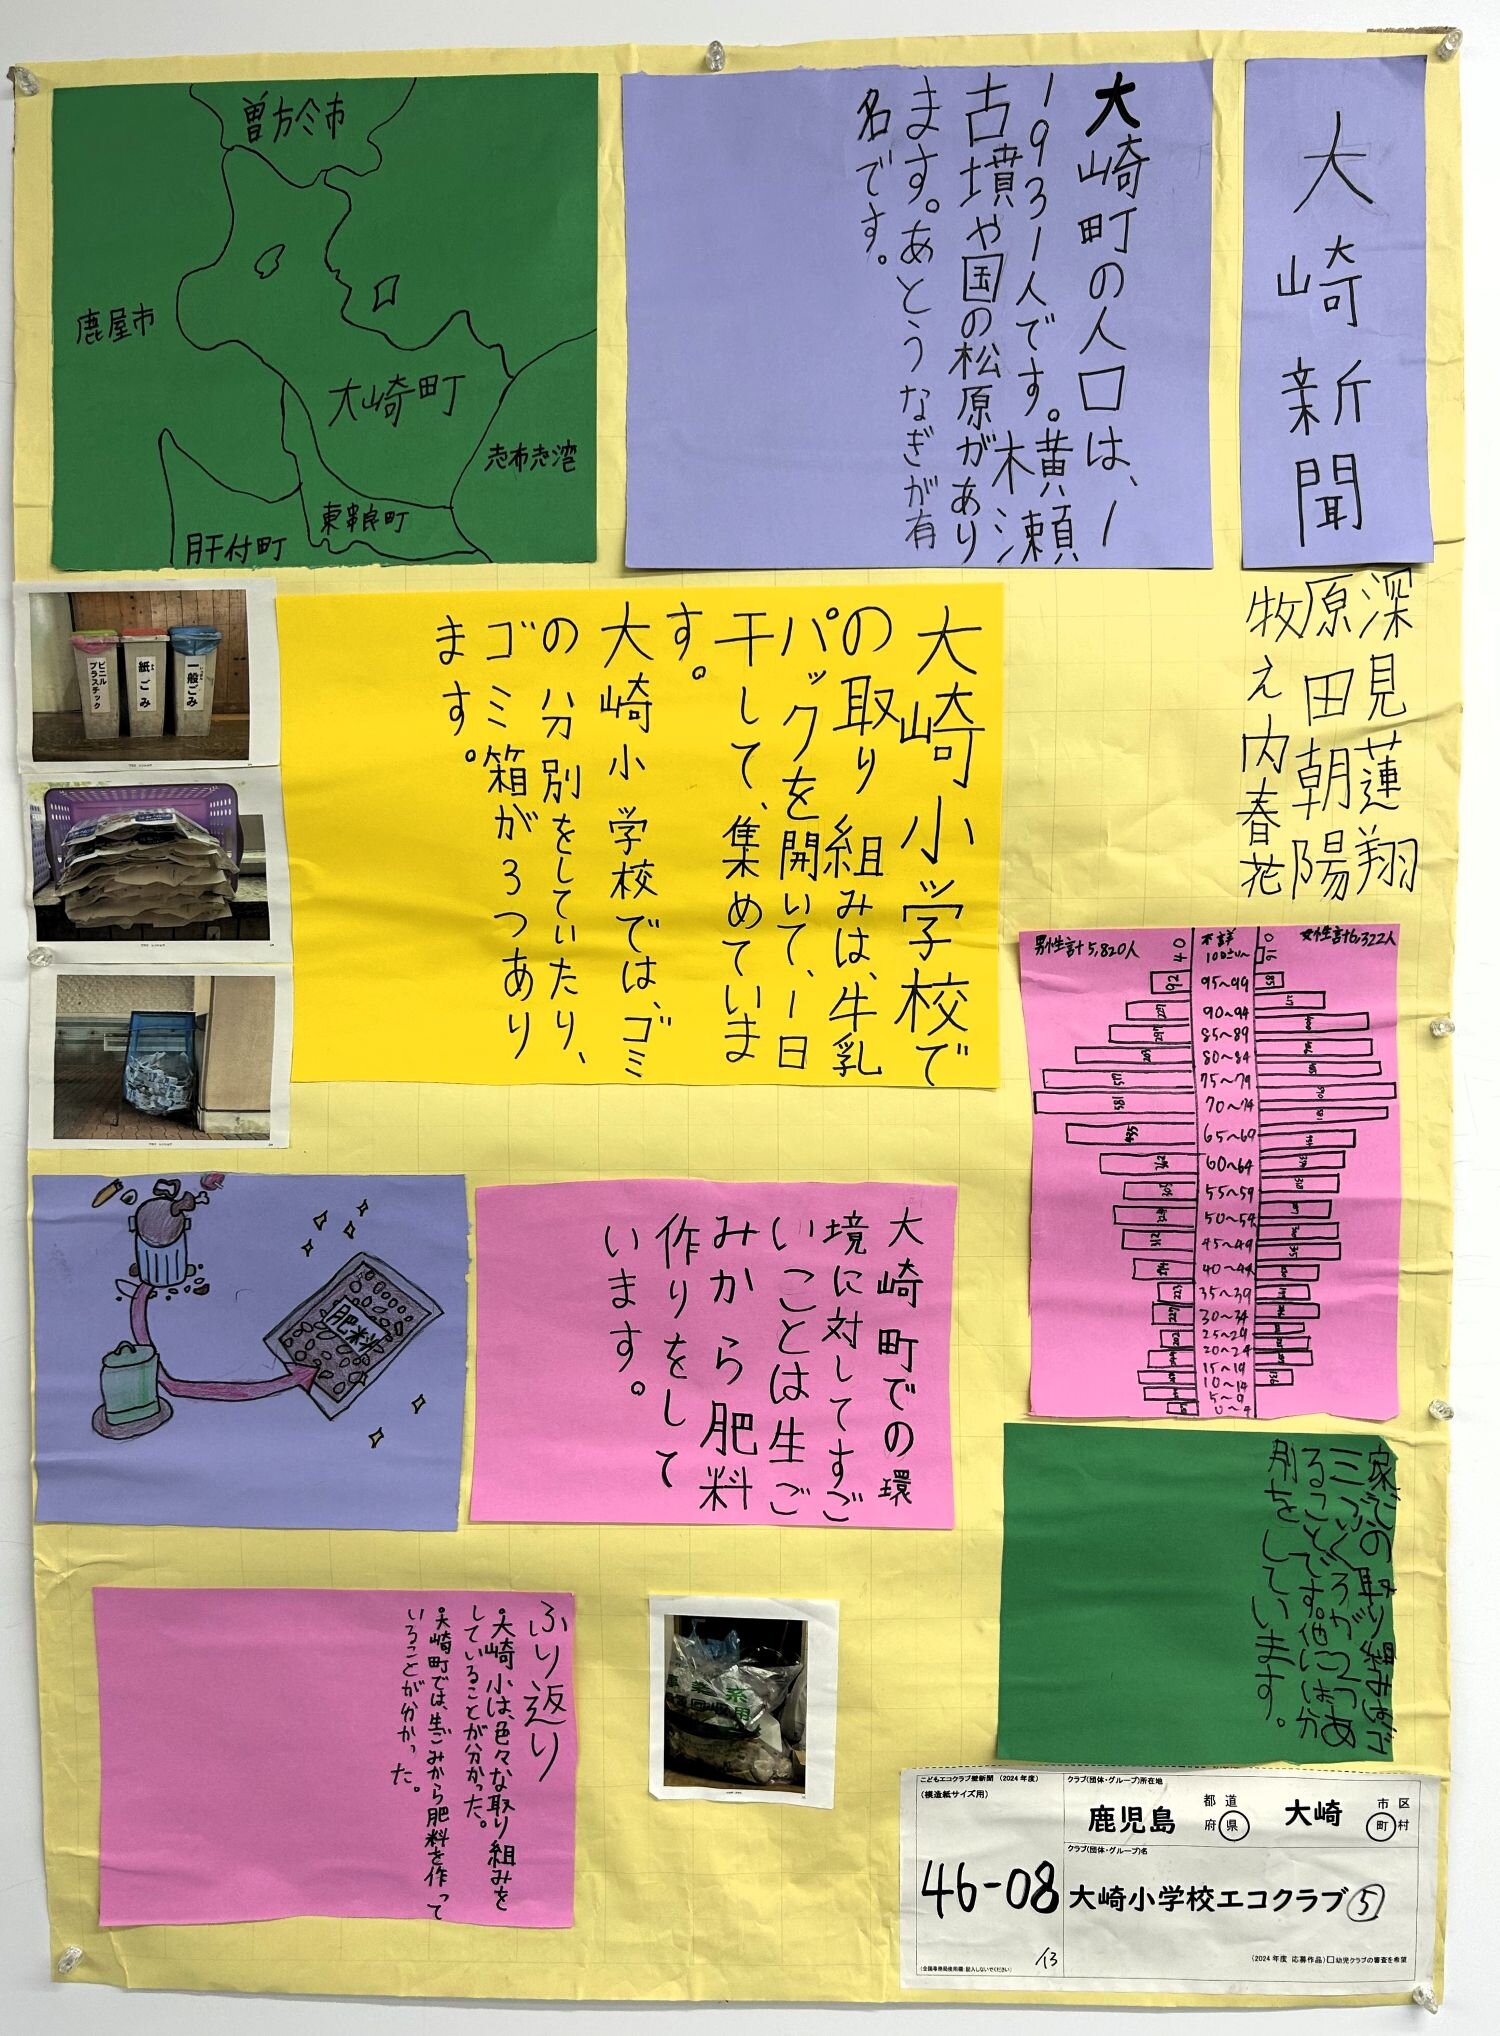 大崎新聞
深見蓮翔
原田朝陽
牧え内春花
大崎町の人口は、1
1931人です。横瀬
古墳や国の松原があり
ます。あとうなぎが有
名です。
曽於市
鹿屋市
大崎町
志布志湾
東串良町
肝付町
大崎小学校で
の取り組みは、牛乳
パックを開いて、1日
干して、集めていま
す。
大崎小学校では、ゴミ
の分別をしていたり、
ゴミ箱が3つあり
ます。
ビニル
プラスチック
紙ごみ
一般ごみ
男性計5,820人
不詳
女性計6,322人
95~99
90~94
85~89
80~84
75~79
70~74
65~69
60~64
55~59
50~54
45~49
40~44
35~39
30~34
25~29
20~24
15~19
10~14
5~9
0~4
大崎町での環
境に対してすご
いことは生ご
みから肥料
作りをして
います。
肥料
家での取り組みはゴ
ミぶくろが2つあ
ることです。他には分
別をしています。
ふり返り
・大崎小は、色々な取り組みを
していることが分かった。
・大崎町では、生ごみから肥料を作って
いることが分かった。
こどもエコクラブ壁新聞 (2024年度)
(模造紙サイズ用)
クラブ(団体・グループ)所在地
鹿児島 都道府県 大崎 市区町村
クラブ(団体・グループ)名
46-08
大崎小学校エコクラブ⑤
/13
(全国事務局使用欄:記入しないでください)
(2024年度 応募作品)□幼児クラブの審査を希望